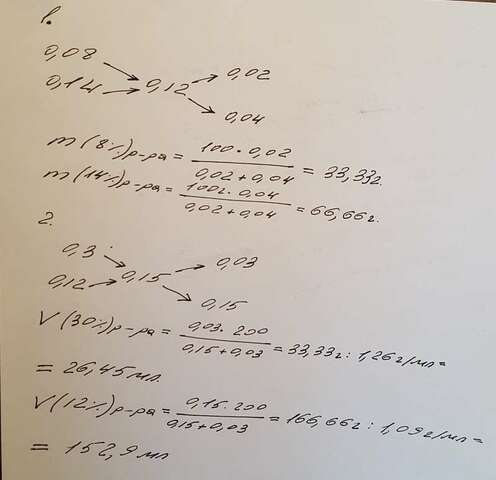 1.
0,08
0,14 → 0,12 → 0,02
0,04
m(8%)р-ра = 100 · 0,02 / 0,02 + 0,04 = 33,33г.
m(14%)р-ра = 100г · 0,04 / 0,02 + 0,04 = 66,66г.
2.
0,3
0,12 → 0,15 → 0,03
0,15
V(30%)р-ра = 0,03 · 200 / 0,15 + 0,03 = 33,33г : 1,26г/мл =
= 26,45мл.
V(12%)р-ра = 0,15 · 200 / 0,15 + 0,03 = 166,66г : 1,09г/мл =
= 152,9мл